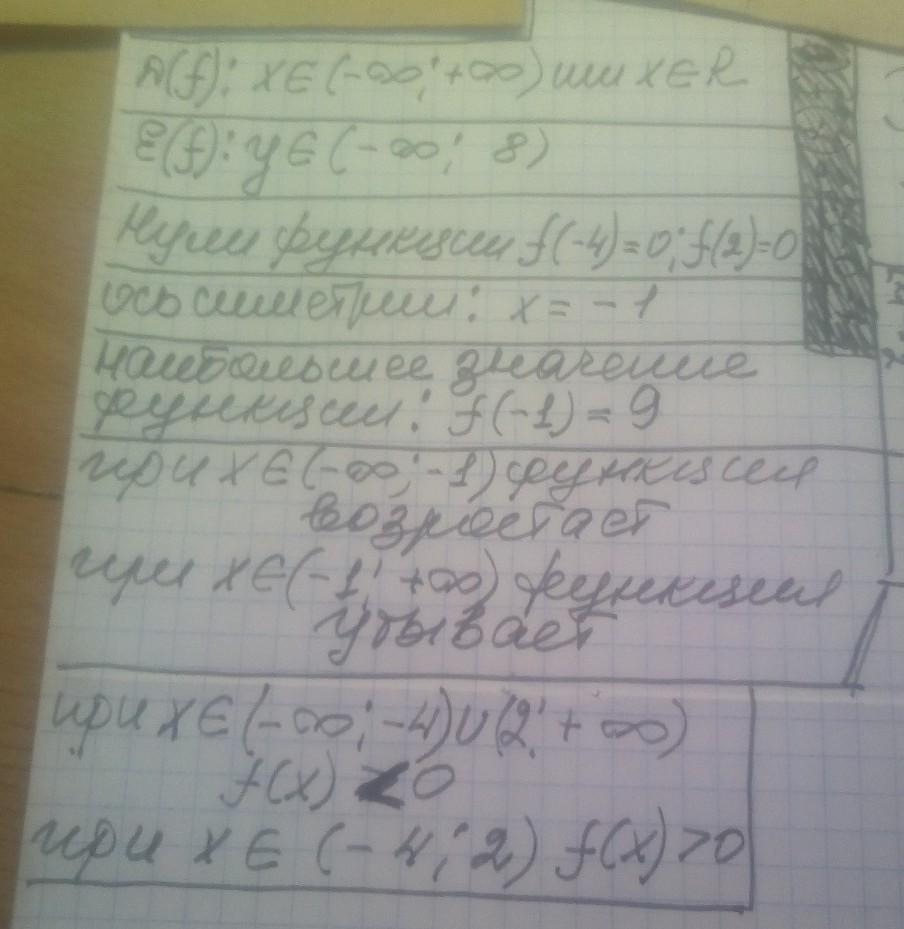 D(f): x∈(-∞;+∞) или x∈R
E(f): y∈(-∞; 8)
Нули функции f(-4)=0; f(2)=0
ось симетрии: x = -1
наибольшее значение
функции: f(-1) = 9
при x∈(-∞;-1) функция
возростает
при x∈(-1; +∞) функция
убывает
при x∈(-∞;-4)∪(2;+∞)
f(x) < 0
при x∈ (-4; 2) f(x)>0